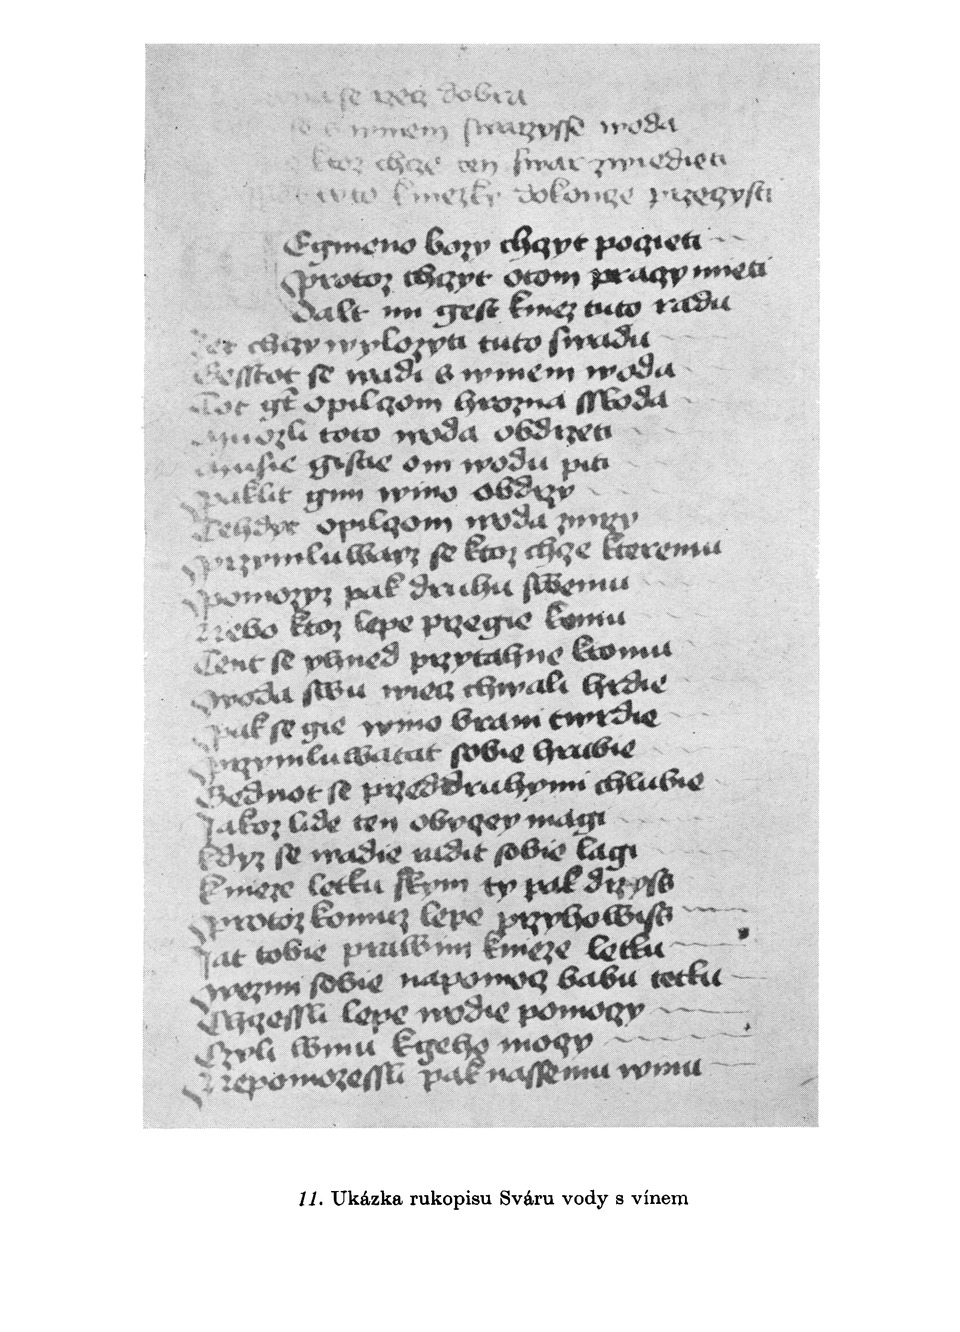 se rzecz dobra
s winem swarzysse woda
ktoz chcze ten swar zwiedieti
tuto kniezky dokoncze przeczysti
Egmeno bozy chczyt poczieti
Protoz chczyt otom praczy mieti
Dalt mi gest kniez tuto radu
chczy wylozyti tuto swadu
Gesstot se wadi s winem woda
Tot gt opilczom hrozna sskoda
toto woda obdrzeti
Musie gistie oni wodu piti
Paklit gim wino obdrzy
Tehdyt opilczom woda zmrzy
Przymluwayz se ktoz chcze kteremu
Pomozyz pak druhu swemu
Nebo ktoz lepe przegie komu
Tent se yhned przytahne ktomu
Woda swu wiecz chwali hrdie
Pak se gie wino brani twrdie
Przymluwatat sobie hrubie
Gednot se przeddruhymi chlubie
Jakoz lide ten obyczey magi
Kdyz se wadie radit sobie lagi
Knieze letku skym ty pak drzyss
Protoz komuz lepe przyhowiss
Jat tobie prawim knieze letku
Wezmi sobie napomocz babu tetku
Chczessli lepe wodie pomoczy
Czyli winu kgeho moczy
Nepomozessli pak nassemu winu
11. Ukázka rukopisu Sváru vody s vínem